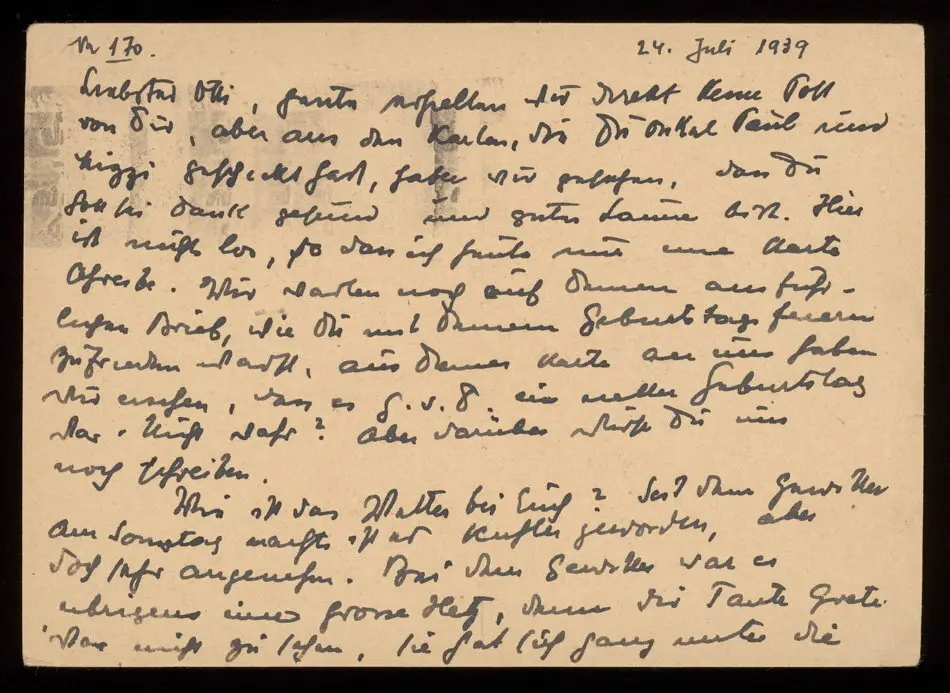 Nr 170. 24. Juli 1939
Liebster Otti, heute erhielten wir direkt keine Post
von Dir, aber aus den Karten, die Du Onkel Paul und
geschickt hast, haben wir gesehen, dass Du
Gott sei Dank gesund und guter Laune bist. Hier
ist nichts los, so dass ich heute nur eine Karte
schreibe. Wir warten noch auf Deinen ausführ-
lichen Brief, wie Du mit Deinem Geburtstag feiern
zufrieden warst, aus Deiner Karte an uns haben
wir ersehen, dass es G. s. D. ein netter Geburtstag
war. Nicht wahr? Aber darüber wirst Du uns
noch schreiben.
Wie ist das Wetter bei Euch? Seit dem Gewitter
am Sonntag nachts ist es kühler geworden, aber
doch sehr angenehm. Bei dem Gewitter war es
übrigens eine grosse Hetz, denn die Tante Grete
war nicht zu sehen, sie hat sich ganz unter die